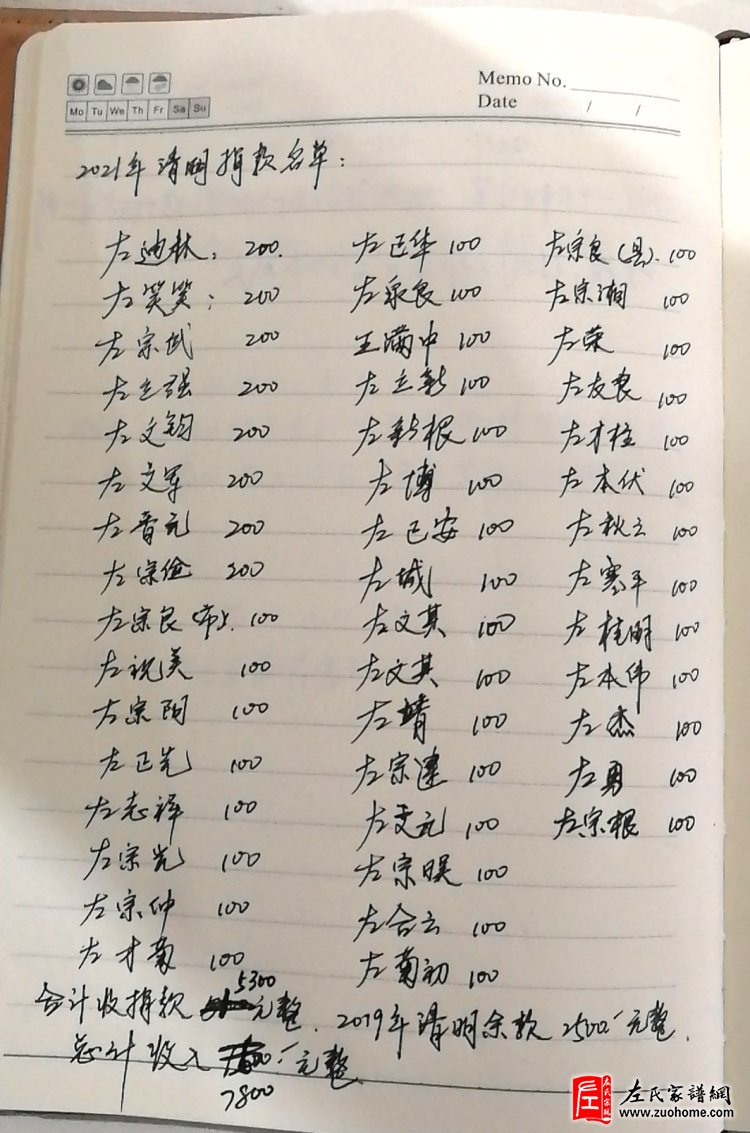 Memo No.
Mo Tu We Th Fr Sa Su
Date / /
2021年清明捐款名单：
左迪林: 200. 左正华 100 左宗良(县). 100
左笑笑: 200 左泉良 100 左宗湘 100
左宗武 200 王满中 100 左荣 100
左立强 200 左立新 100 左友良 100
左文钧 200 左新根 100 左才柱 100
左文军 200 左博 100 左本伏 100
左晋元 200 左正安 100 左秋云 100
左宗俭 200 左城 100 左寒平 100
左宗良(市). 100 左文其 100 左桂明 100
左祝美 100 左文其 100 左本伟 100
左宗阳 100 左靖 100 左杰 100
左正先 100 左宗建 100 左勇 100
左志祥 100 左文元 100 左宗根 100
左宗光 100 左宗 100
左宗仲 100 左合云 100
左才南 100 左南初 100
合计收捐款 5300 元整. 2019年清明余款 2500 元整.
总计收入 7800 元整
左氏家譜網
www.zuohome.com